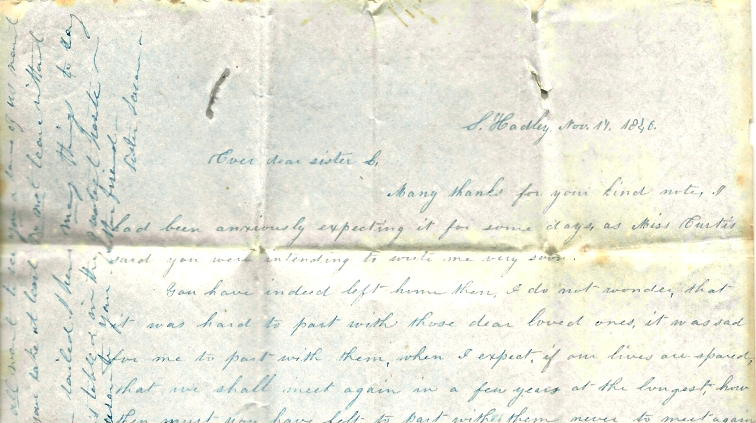 S. Hadley, Nov. 17. 1846.
Ever dear sister L.
Many thanks for your kind note, I
had been anxiously expecting it for some days, as Miss Curtis
said you were intending to write me very soon.
You have indeed left home then, I do not wonder, that
it was hard to part with those dear loved ones, it was sad
for me to part with them, when I expect if our lives are spared,
that we shall meet again in a few years at the longest, how
then must you have felt to part with them never to meet again
all want to see you
you take at least do not leave without
sailed I have many things to day